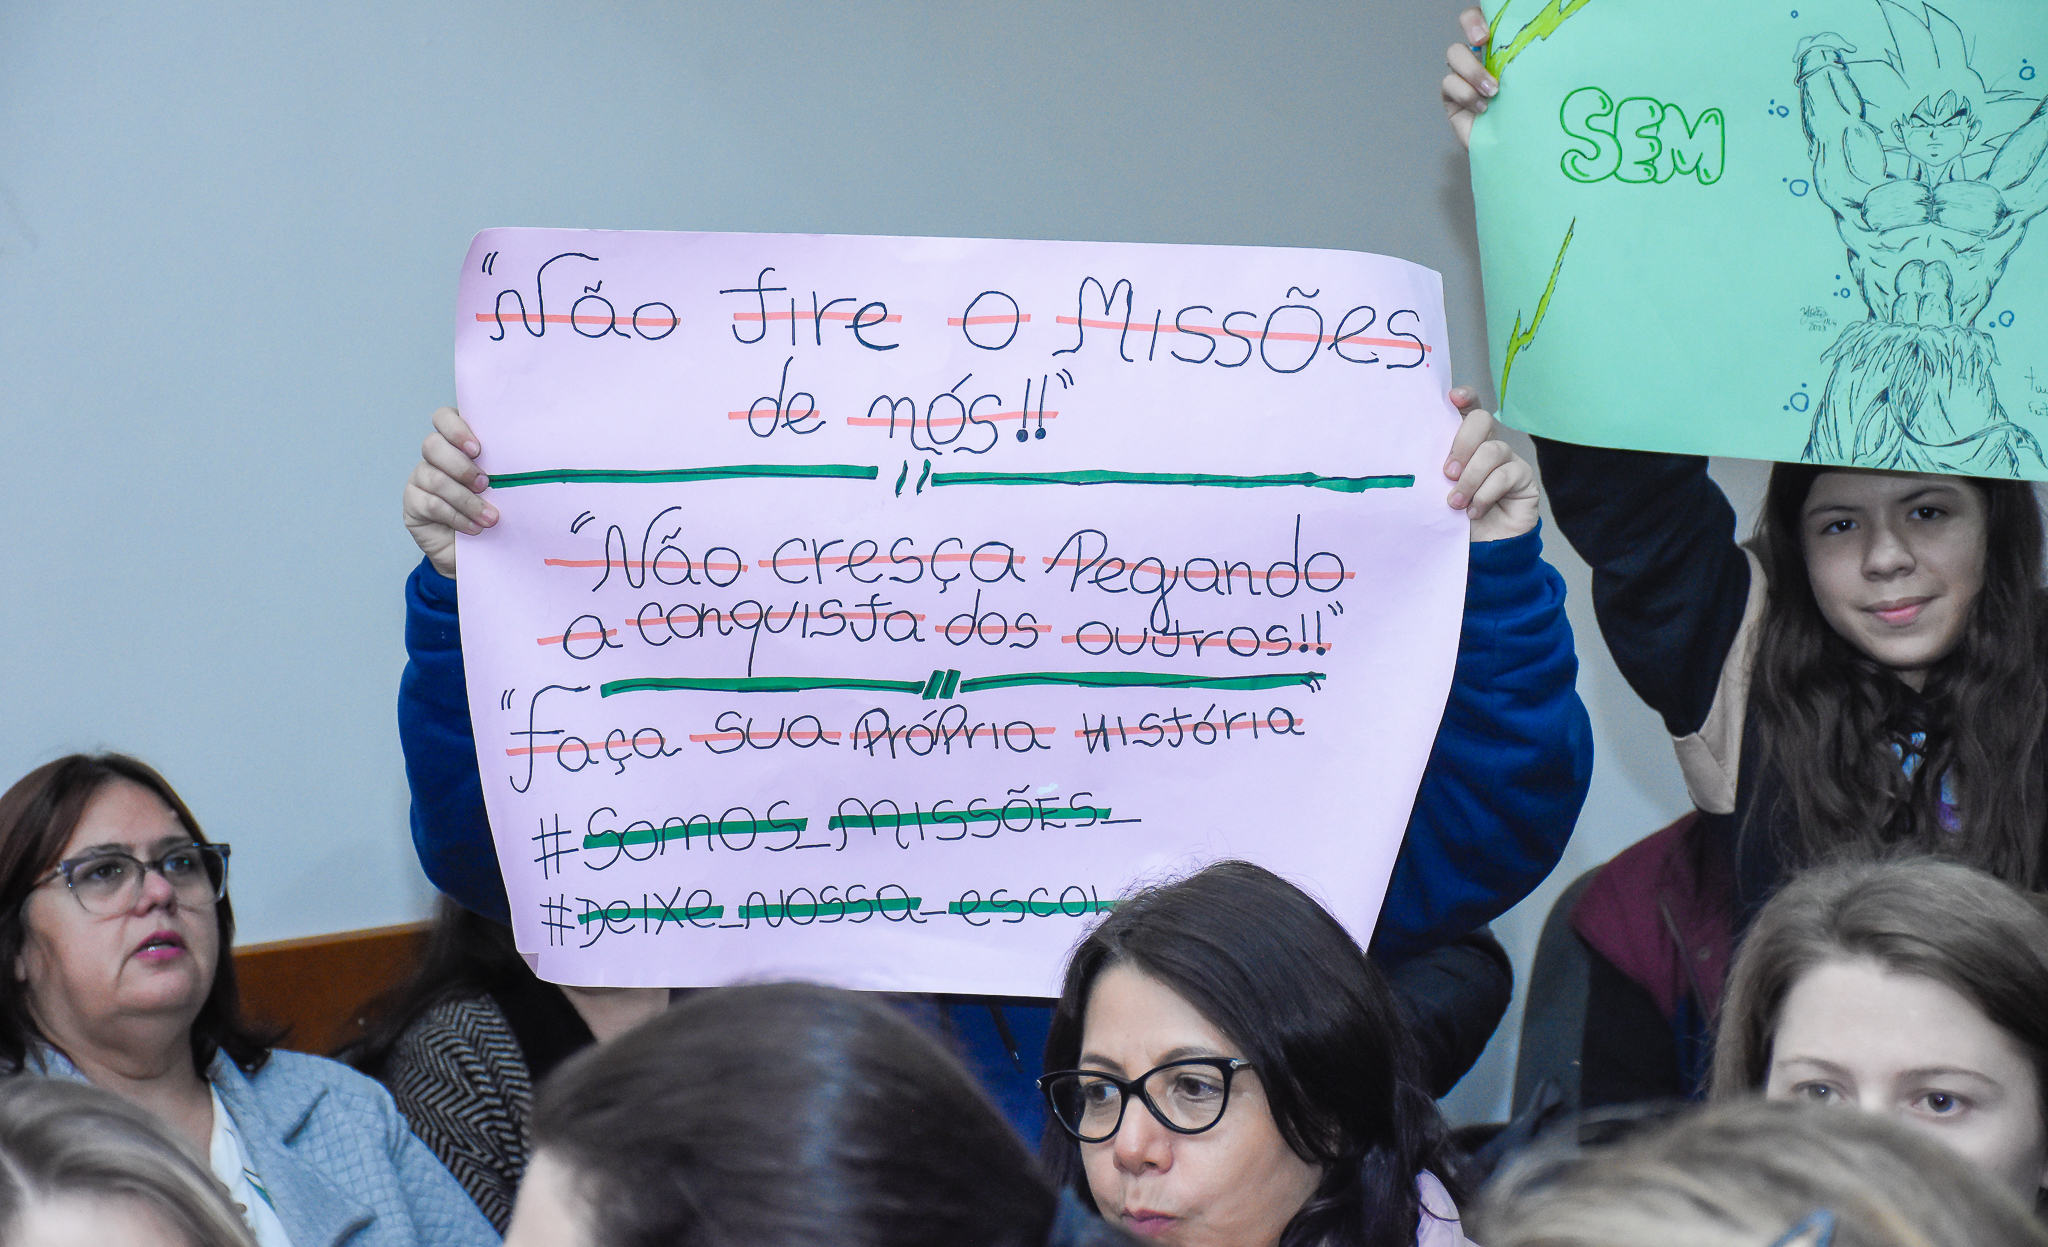 "Não tire o Missões
de nós!!"
"Não cresça Pegando
a conquista dos outros!!"
"Faça sua própria História"
#Somos_Missões_
#Deixe_Nossa_escol
SEM
2023